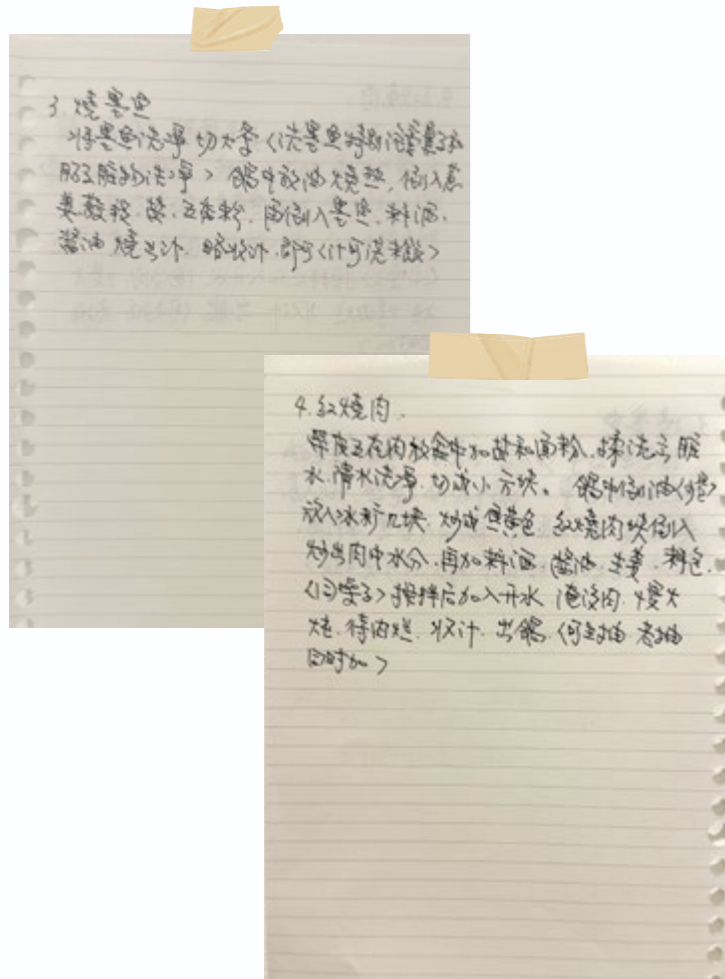 3. 烧墨鱼
将墨鱼洗净切大条<洗墨鱼特别注意鼻子和
肚脏的洗净> 锅中放油烧热,倒入葱
姜,散程,盐,五香粉,再倒入墨鱼,料酒,
酱油 烧出汁,略收汁,即可<汁可浇米饭>
4. 红烧肉.
带皮五花肉放盆中加盐和面粉,揉洗去脏
水,清水洗净,切成小方块。 锅中倒油
放入冰糖几块,炒成焦黄色 红烧肉块倒入
炒出肉中水分,再加料酒,酱油,生姜,料包,
搅拌后加入开水 淹没肉,慢火
炖,待肉烂,收汁,出锅,<可生抽 老抽
同时加>